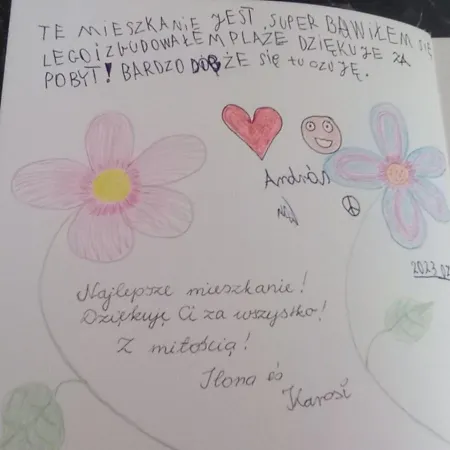 TE MIESZKANIE JEST SUPER BAWIŁEM SIĘ
LEGO I ZBUDOWAŁEM PLAŻE DZIĘKUJE ZA
POBYT! BARDZO DOBŻE SIĘ tu czuję.
András
2023.02
Najlepsze mieszkanie!
Dziękuję Ci za wszystko!
Z miłością!
Ilona és
Karosi